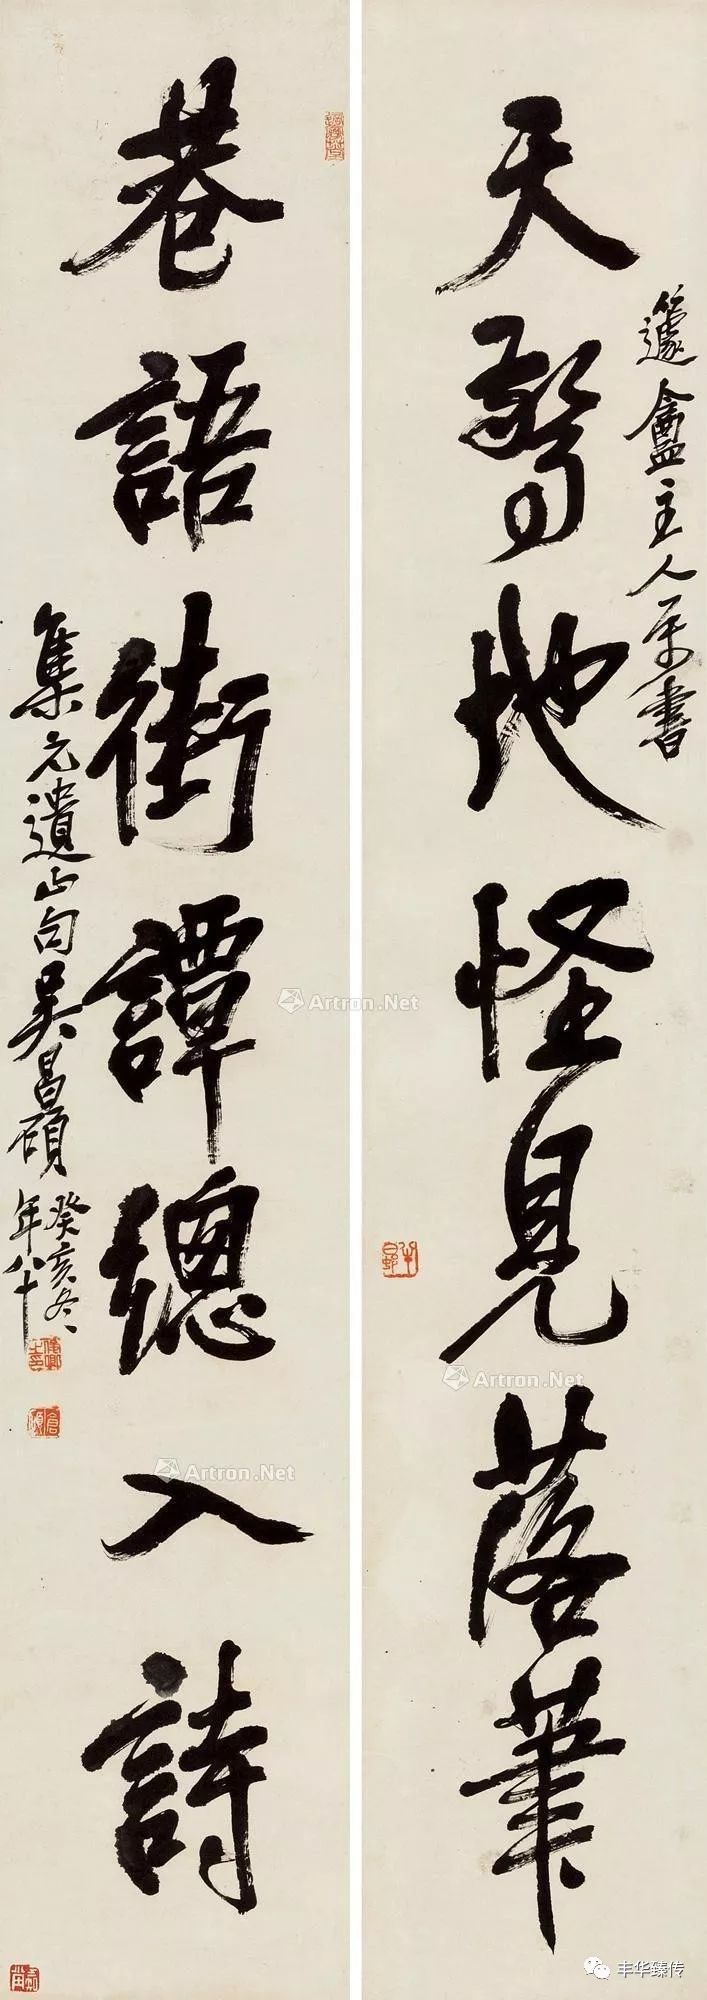 籧盦主人属書
天驚地怪見落筆
半日邨
巷語街譚總入詩
集元遺山句吳昌碩
癸亥冬
年八十
俊卿之印
倉碩
Artron.Net
Artron.Net
Artron.Net
丰华臻传